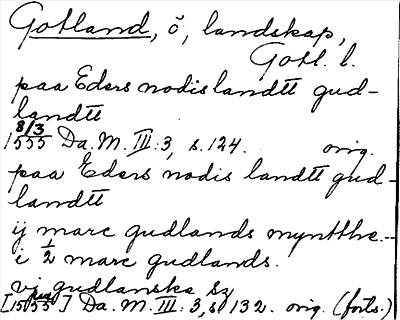 Gotland, ö, landskap,
Gotl. l.
paa Eders nodis landtt gud-
landtt
8/3
1555 Da. M. III: 3, s. 124. orig.
paa Eders nodis landtt gud-
landtt
ij marc gudlands myntthe...
i 1/2 marc gudlands.
vj gudlanske
[1555] Da. M. III: 3, s. 132. orig. (forts.)